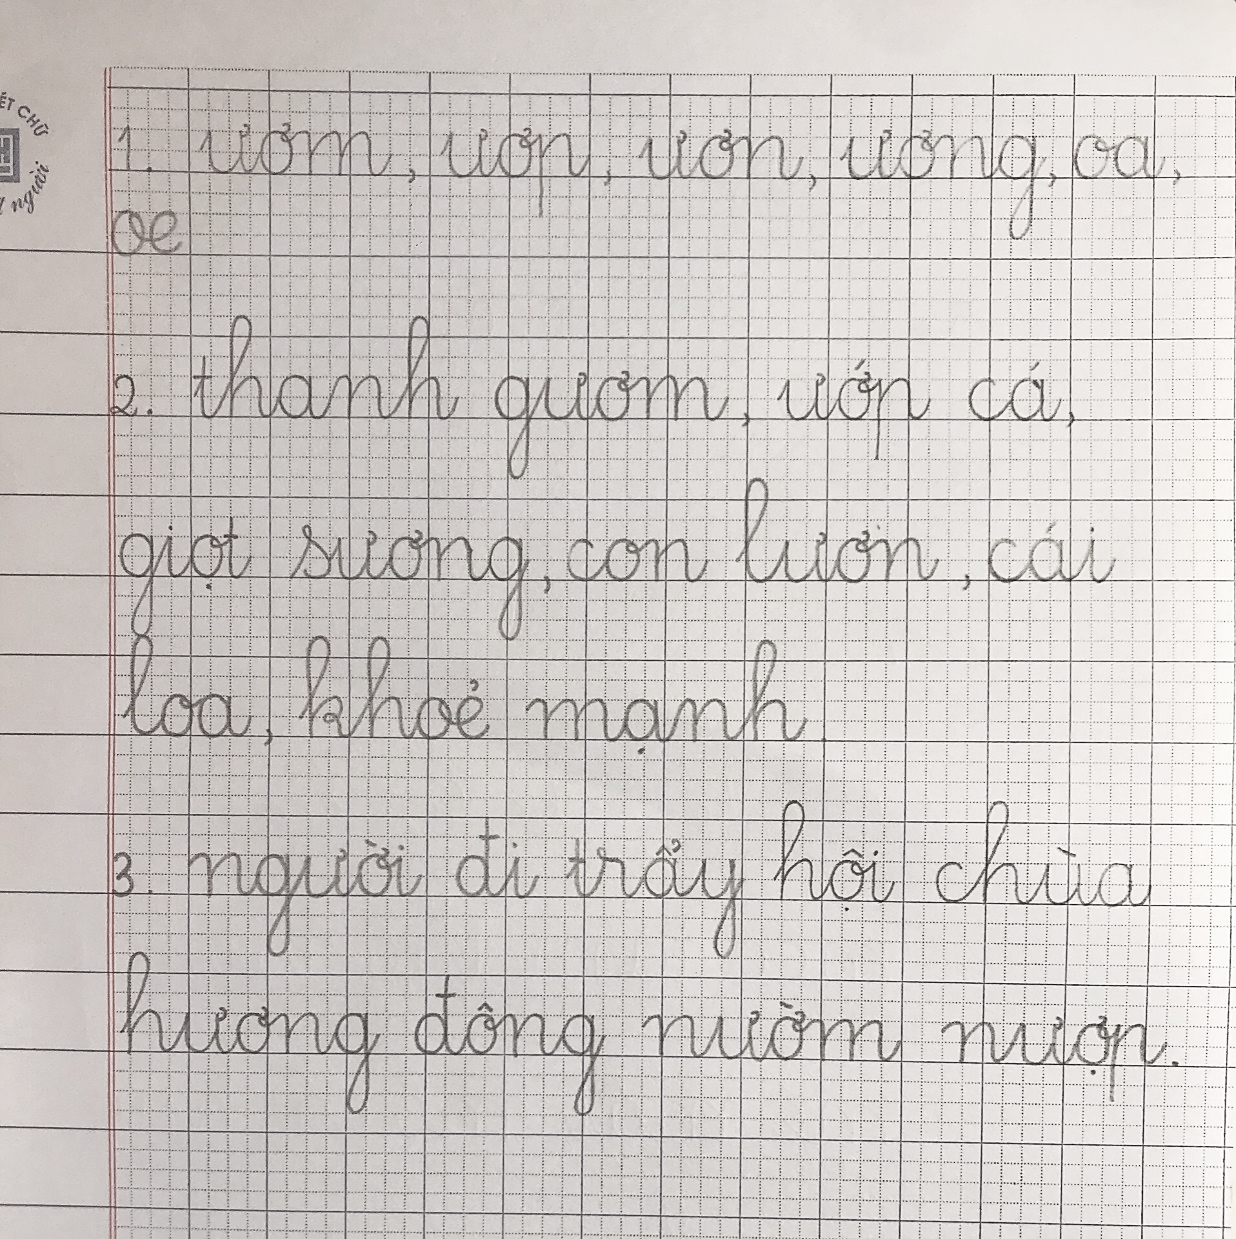 ẾT CHỮ
H
người
1. ươm, ươp, ươn, ương, oa,
oe
2. thanh gươm, ướp cá,
giọt sương, con lươn, cái
loa, khoẻ mạnh
3. người đi trẩy hội chùa
hương đông nườm nượp.